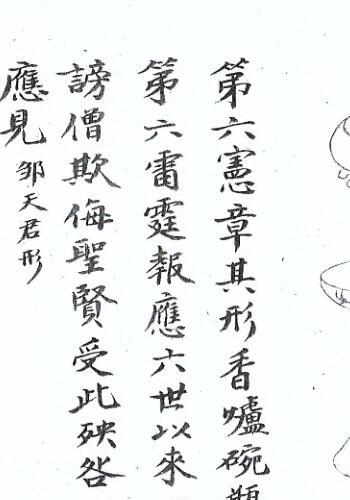 第六憲章其形香爐碗瓶
第六雷霆報應六世以來
謗僧欺侮聖賢受此殃咎
應見 邹天君形